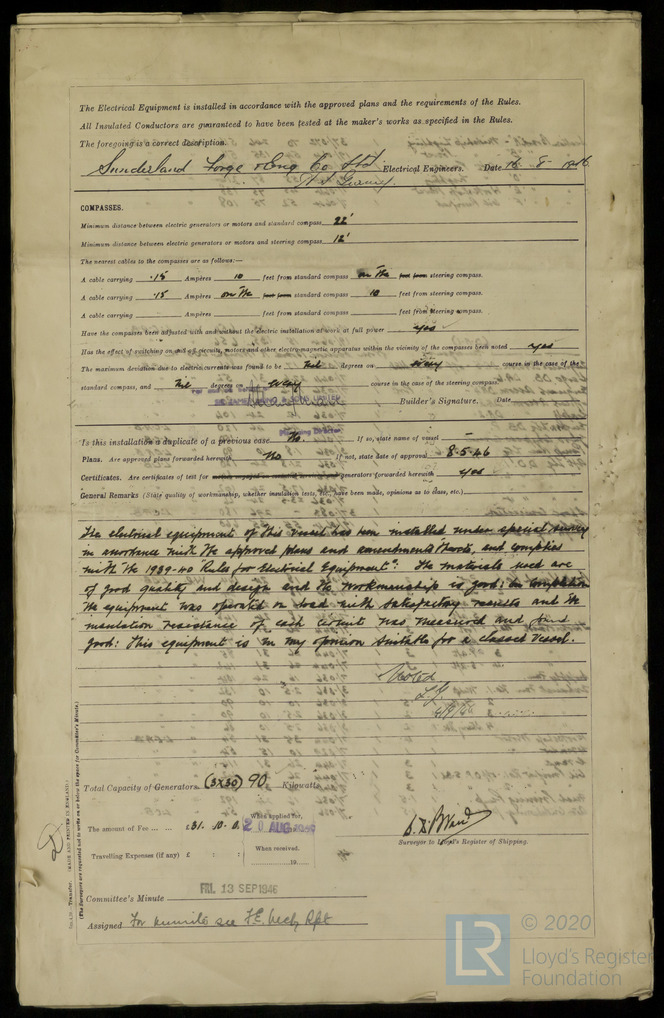 The Electrical Equipment is installed in accordance with the approved plans and the requirements of the Rules.
All Insulated Conductors are guaranteed to have been tested at the maker's works as specified in the Rules.
The foregoing is a correct description.
Sunderland Forge & Eng Co Ltd Electrical Engineers. Date 16 - 8 - 1946
COMPASSES.
Minimum distance between electric generators or motors and standard compass 22'
Minimum distance between electric generators or motors and steering compass 12'
The nearest cables to the compasses are as follows:—
A cable carrying .15 Ampères 10 feet from standard compass on the feet from steering compass.
A cable carrying .15 Ampères on the feet from standard compass 10 feet from steering compass.
A cable carrying Ampères feet from standard compass feet from steering compass.
Have the compasses been adjusted with and without the electric installation at work at full power yes
Has the effect of switching on and off circuits, motors and other electro-magnetic apparatus within the vicinity of the compasses been noted yes
The maximum deviation due to electric currents was found to be Nil degrees on every course in the case of the
standard compass, and Nil degrees on every course in the case of the steering compass.
Builder's Signature. Date
Is this installation a duplicate of a previous case No. If so, state name of vessel —
Plans. Are approved plans forwarded herewith No If not, state date of approval 8-5-46
Certificates. Are certificates of test for generators forwarded herewith yes
General Remarks (State quality of workmanship, whether insulation tests, etc., have been made, opinions as to class, etc.)
The electrical equipment of this vessel has been installed under special survey
in accordance with the approved plans and amendments thereto, and complies
with the 1939-40 Rules for "Electrical Equipment". The materials used are
of good quality and design and the workmanship is good: on completion
the equipment was operated on load with satisfactory results and the
insulation resistance of each circuit was measured and found
good: This equipment is in my opinion suitable for a classed vessel.
Noted
Total Capacity of Generators (3x30) 90 Kilowatts.
The amount of Fee ... ... £31. 10. 0. When applied for, 20 AUG 1946
Travelling Expenses (if any) £ : : When received, 19
Surveyor to Lloyd's Register of Shipping.
Committee's Minute FRI. 13 SEP 1946
Assigned For minute see F.E. Mchy Rpt
(MADE AND PRINTED IN ENGLAND.)
(The Surveyors are requested not to write on or below the space for Committee's Minute.)
LR
© 2020
Lloyd's Register
Foundation